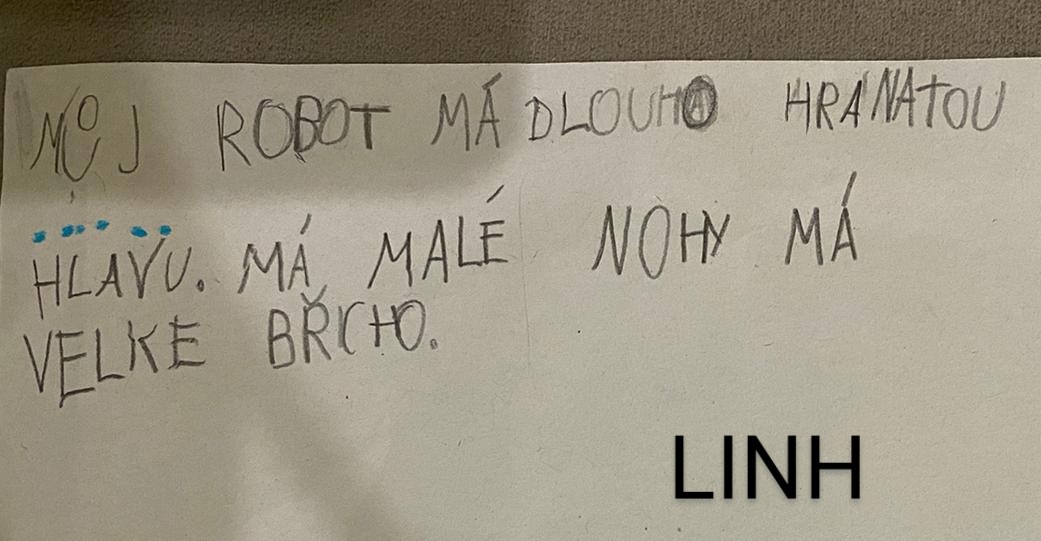 MŮJ ROBOT MÁ DLOUHO HRANATOU
HLAVU. MÁ MALÉ NOHY MÁ
VELKE BŘCHO.
LINH